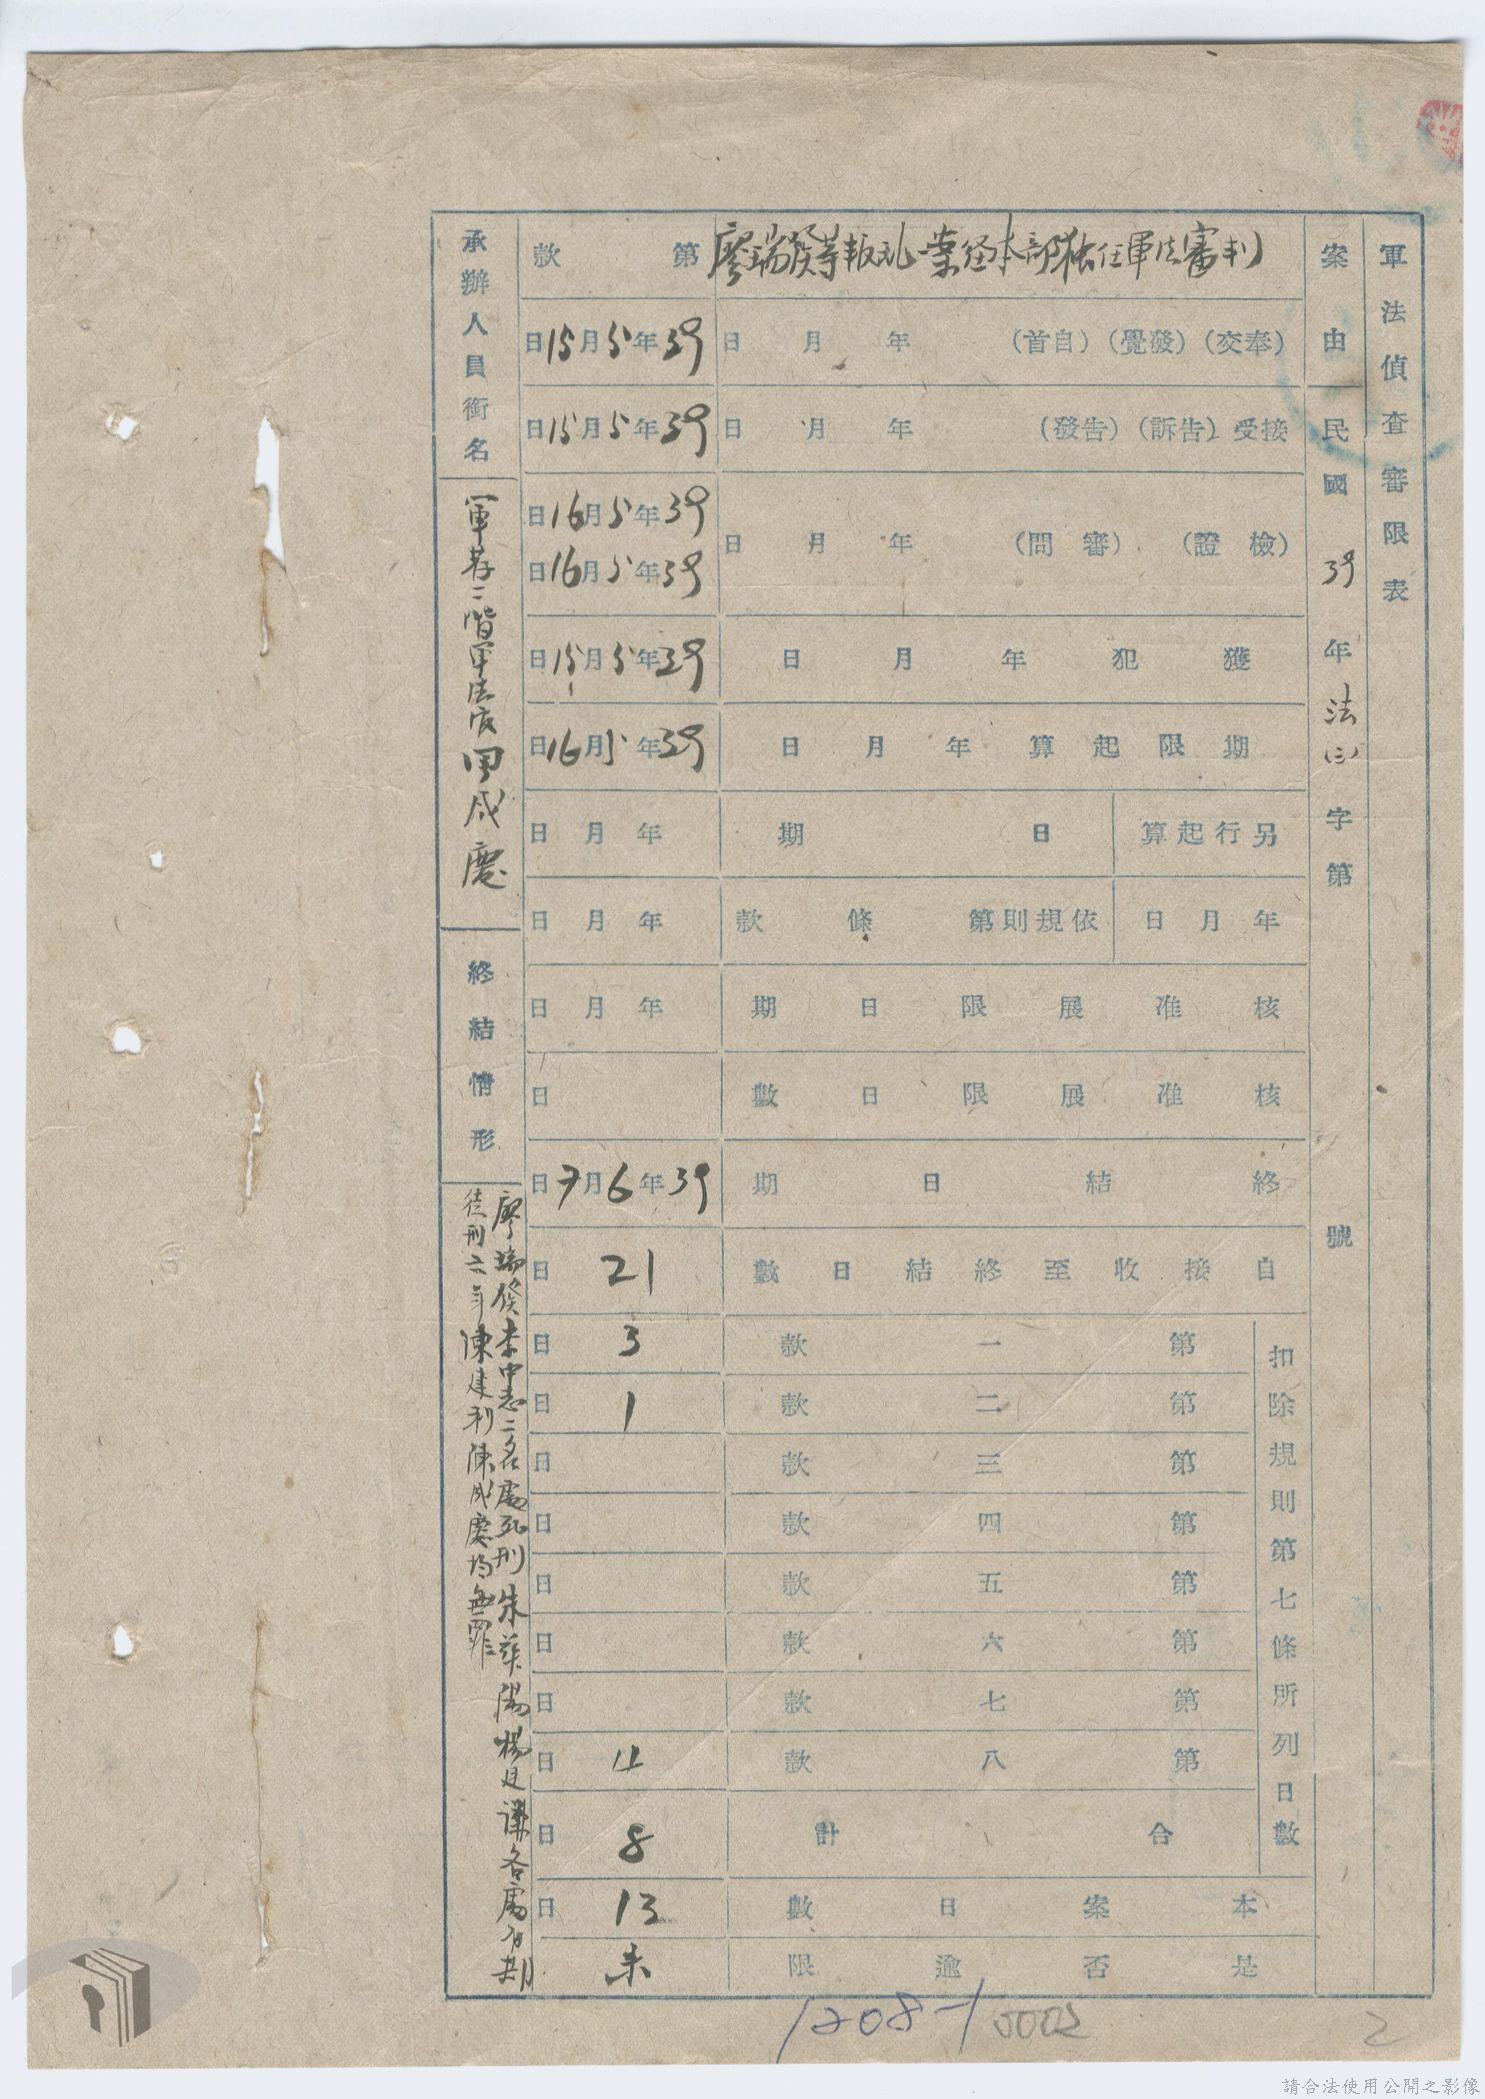 軍法偵查審限表
案由 民國39年法(三)字第 號
廖瑞發等叛乱一案経本部独任軍法審判
第 款
(奉交)(發覺)(自首) 年 月 日 39年5月15日
接受(告訴)(告發) 年 月 日 39年5月15日
(檢證) (審問) 年 月 日 39年5月16日
39年5月16日
獲犯年月日 39年5月15日
期限起算年月日 39年5月16日
另行起算 日期 年月日
年月日 依規則第 條 款 年月日
核准展限日期 年月日
核准展限日數 日
終結日期 39年6月7日
自接收至終結日數 21日
扣除規則第七條所列日數
第一款 3日
第二款 1日
第三款 日
第四款 日
第五款 日
第六款 日
第七款 日
第八款 4日
合計 8日
本案日數 13日
是否逾限 未
承辦人員銜名
軍荐二階軍法官 成慶
終結情形
廖瑞發李中志二名處死刑朱 楊廷 各處有期
徒刑六年陳建利陳成慶均無罪
1208-1
0002
2
請合法使用公開之影像